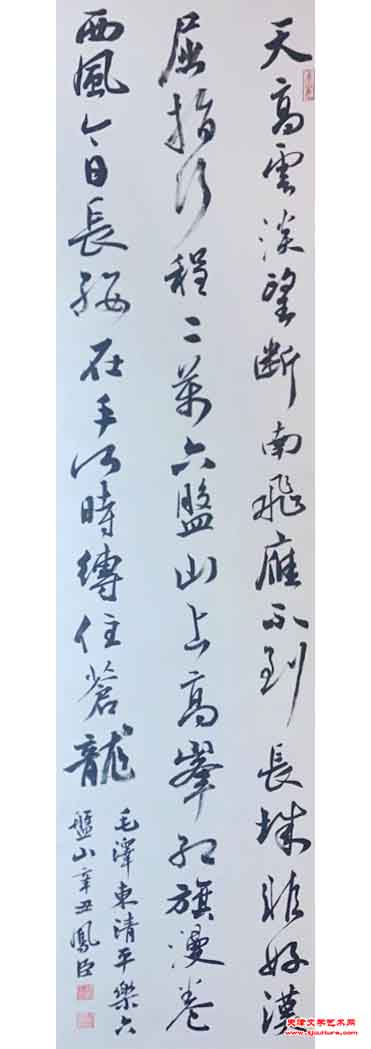 天高雲淡望斷南飛雁不到長城非好漢
屈指行程二萬六盤山上高峰紅旗漫卷
西風今日長纓在手何時縛住蒼龍
毛澤東清平樂六
盤山辛丑鳳臣
天津文学艺术网
www.tjculture.com